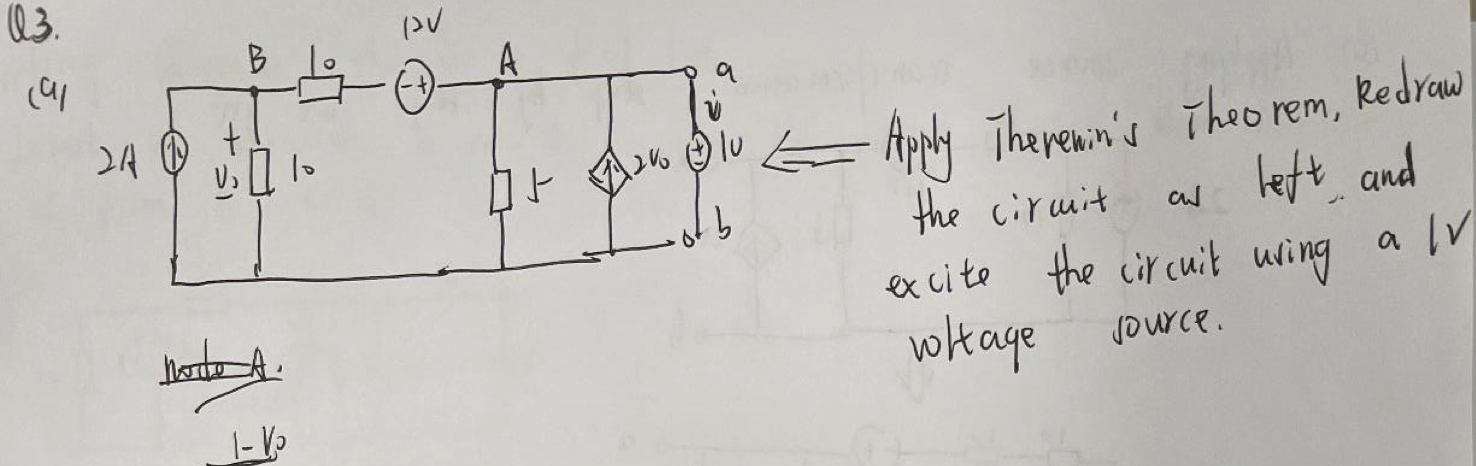 Q3.
(a)
12V
B
10
- +
A
a
i
2A
+
V₀
10
5
2V₀
+
-
1V
b
Apply Thevenin's Theorem, Redraw
the circuit as left, and
excite the circuit using a 1V
voltage source.
node A.
1-V₀